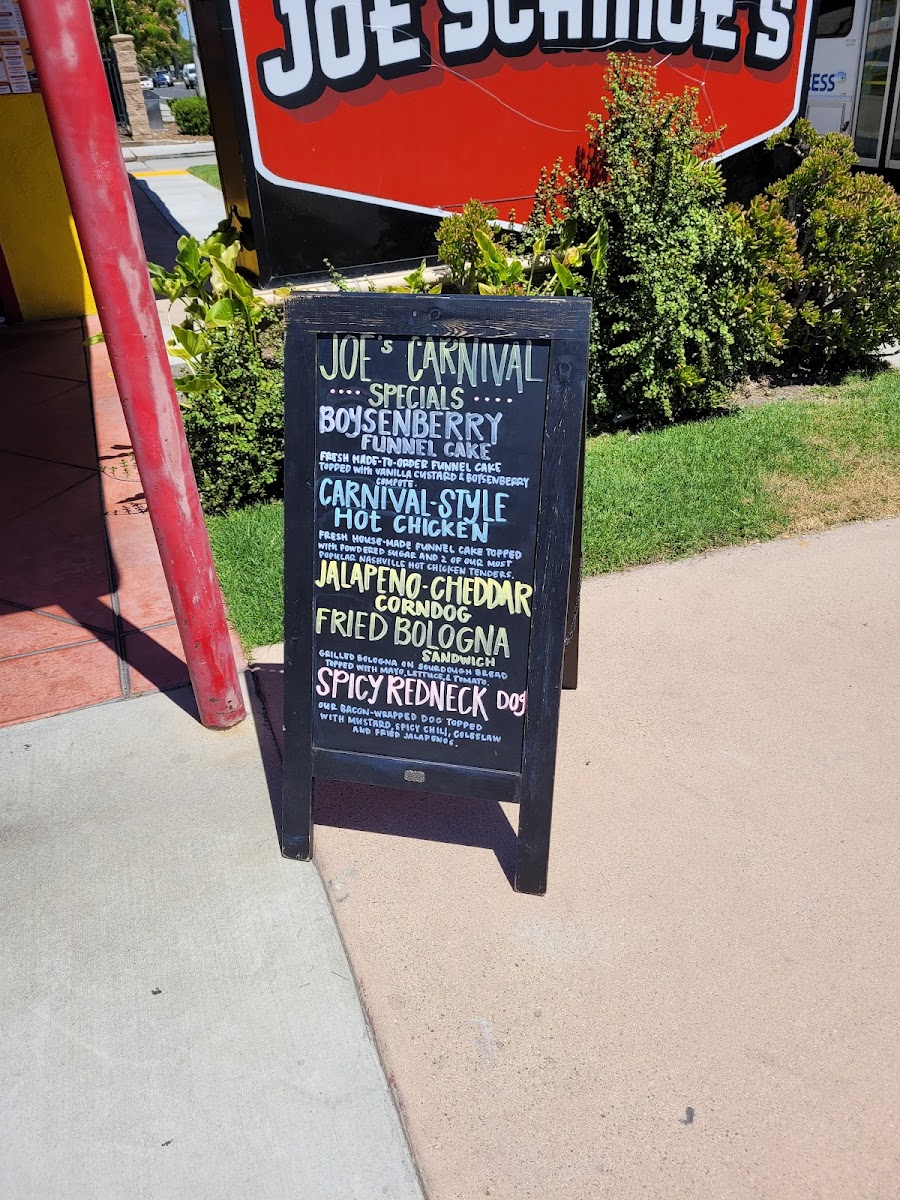 JOE SCHMOE'S
ESS
JOE's CARNIVAL
SPECIALS
BOYSENBERRY
FUNNEL CAKE
FRESH MADE-TO-ORDER FUNNEL CAKE
TOPPED WITH VANILLA CUSTARD & BOYSENBERRY
COMPOTE.
CARNIVAL-STYLE
HOT CHICKEN
FRESH HOUSE-MADE FUNNEL CAKE TOPPED
WITH POWDERED SUGAR AND 2 OF OUR MOST
POPULAR NASHVILLE HOT CHICKEN TENDERS.
JALAPENO-CHEDDAR
CORNDOG
FRIED BOLOGNA
SANDWICH
GRILLED BOLOGNA ON SOURDOUGH BREAD
TOPPED WITH MAYO, LETTUCE, & TOMATO.
SPICY REDNECK DOG
OUR BACON-WRAPPED DOG TOPPED
WITH MUSTARD, SPICY CHILI, COLESLAW
AND FRIED JALAPENOS.